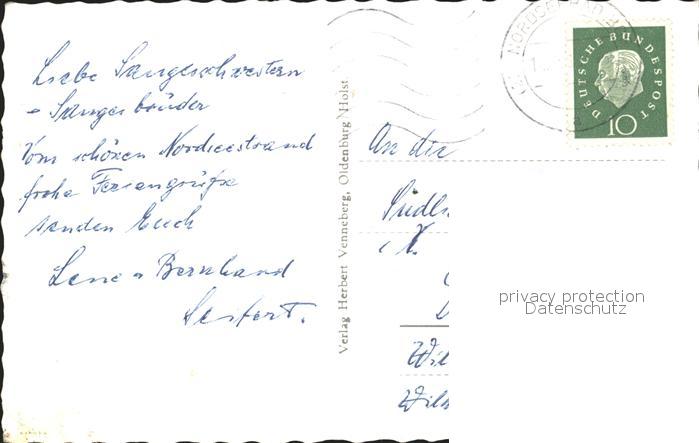 Liebe Sangesschwestern
- Sangesbrüder
Vom schönen Nordseestrand
frohe Feriengrüße
senden Euch
Lene u Bernhard
Seifert.
Verlag Herbert Venneberg, Oldenburg/Holst
NORDSEEBAD
DEUTSCHE BUNDESPOST
10
An die
privacy protection
Datenschutz